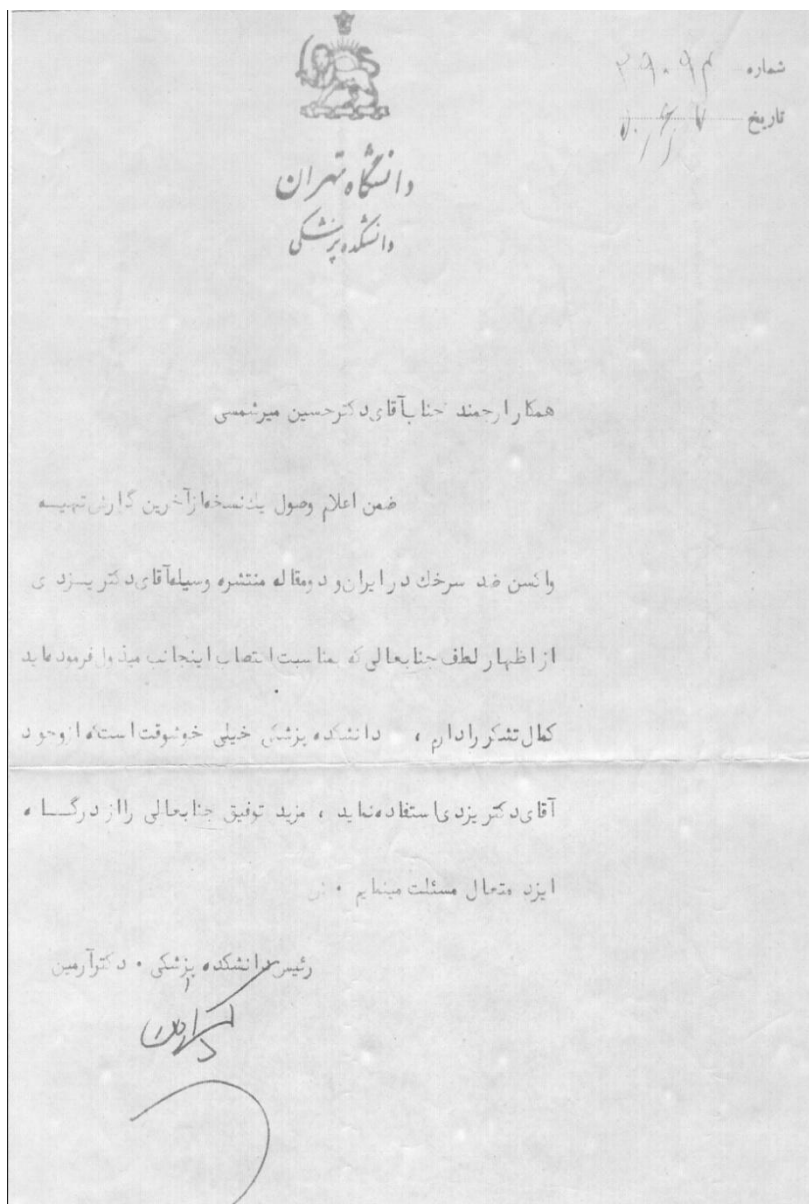 شماره ۳۹۰۹۴
تاریخ
دانشگاه تهران
دانشکده پزشکی
همکار ارجمند جناب آقای دکتر حسین میرشمسی
ضمن اعلام وصول یک نسخه از آخرین گزارش تهیه
واکسن ضد سرخک در ایران و دو مقاله منتشره وسیله آقای دکتر یزدی
از اظهار لطف جنابعالی که بمناسبت انتصاب اینجانب مبذول فرموده‌اید
کمال تشکر را دارم ، دانشکده پزشکی خیلی خوشوقت است که از وجود
آقای دکتر یزدی استفاده نماید ، مزید توفیق جنابعالی را از درگاه
ایزد متعال مسئلت مینمایم ۰
رئیس دانشکده پزشکی ۰ دکتر آرمین